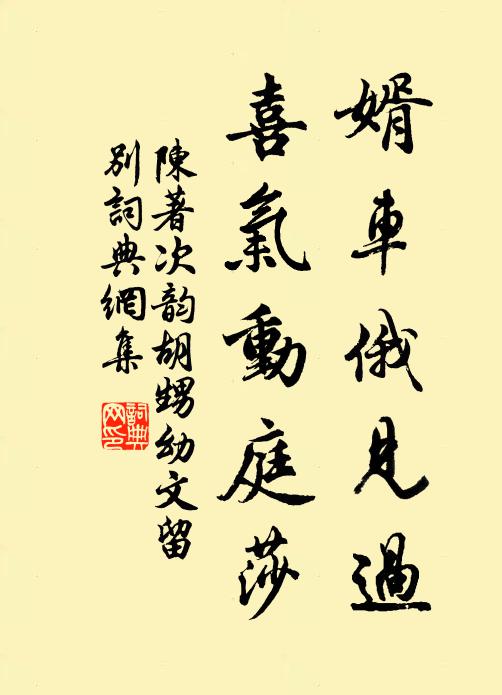 婿車俄見過
喜氣動庭莎
陳著次韵胡甥幼文留
別詞典網集
詞典網印